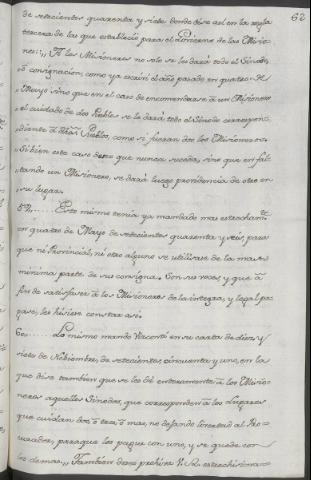 62
de setecientos quarenta y siete donde dise asi en la regla
tercera de las que establecio para el Govierno de las Misio-
nes: ,, A los Misioneros no solo se les dará todo el Sinodo,
ò consignacion, como ya escriví el año pasado en quatro de
Mayo sino que en el caso de encomendarse à un Misionero
el cuidado de dos Pueblos se le dará todo el Sinodo correspon-
diente à dichos Pueblos, como si fueran dos los Misioneros.
Si bien este caso deseo que nunca suceda, sino que en fal-
tando un Misionero, se dará luego providencia de otro en
su lugar.
59,, ..... Esto mismo tenia ya mandado mas estrechamte.
en quatro de Mayo de setecientos quarenta y seis, para
que ni Provincial, ni otro alguno se utilisase de la mas
minima parte de su consigna. Con sus voces y que à
fin de satisfaser à los Misioneros de la integra, y legal pa-
ga, se les hisiese constar asi.
60 ...... Lo mismo mandó Visconti en su carta de diez y
siete de Nobiembre, de setecientos cincuenta y uno, en la
que dise tambien que se les dé enteramente à los Misio-
neros aquellos Sinodos, que corresponden à los Lugares
que cuidan dos ò tres, ò mas, no dejando livertad al Pro-
curador, para que les pague con uno, y se quede con
los demas,, Tambien